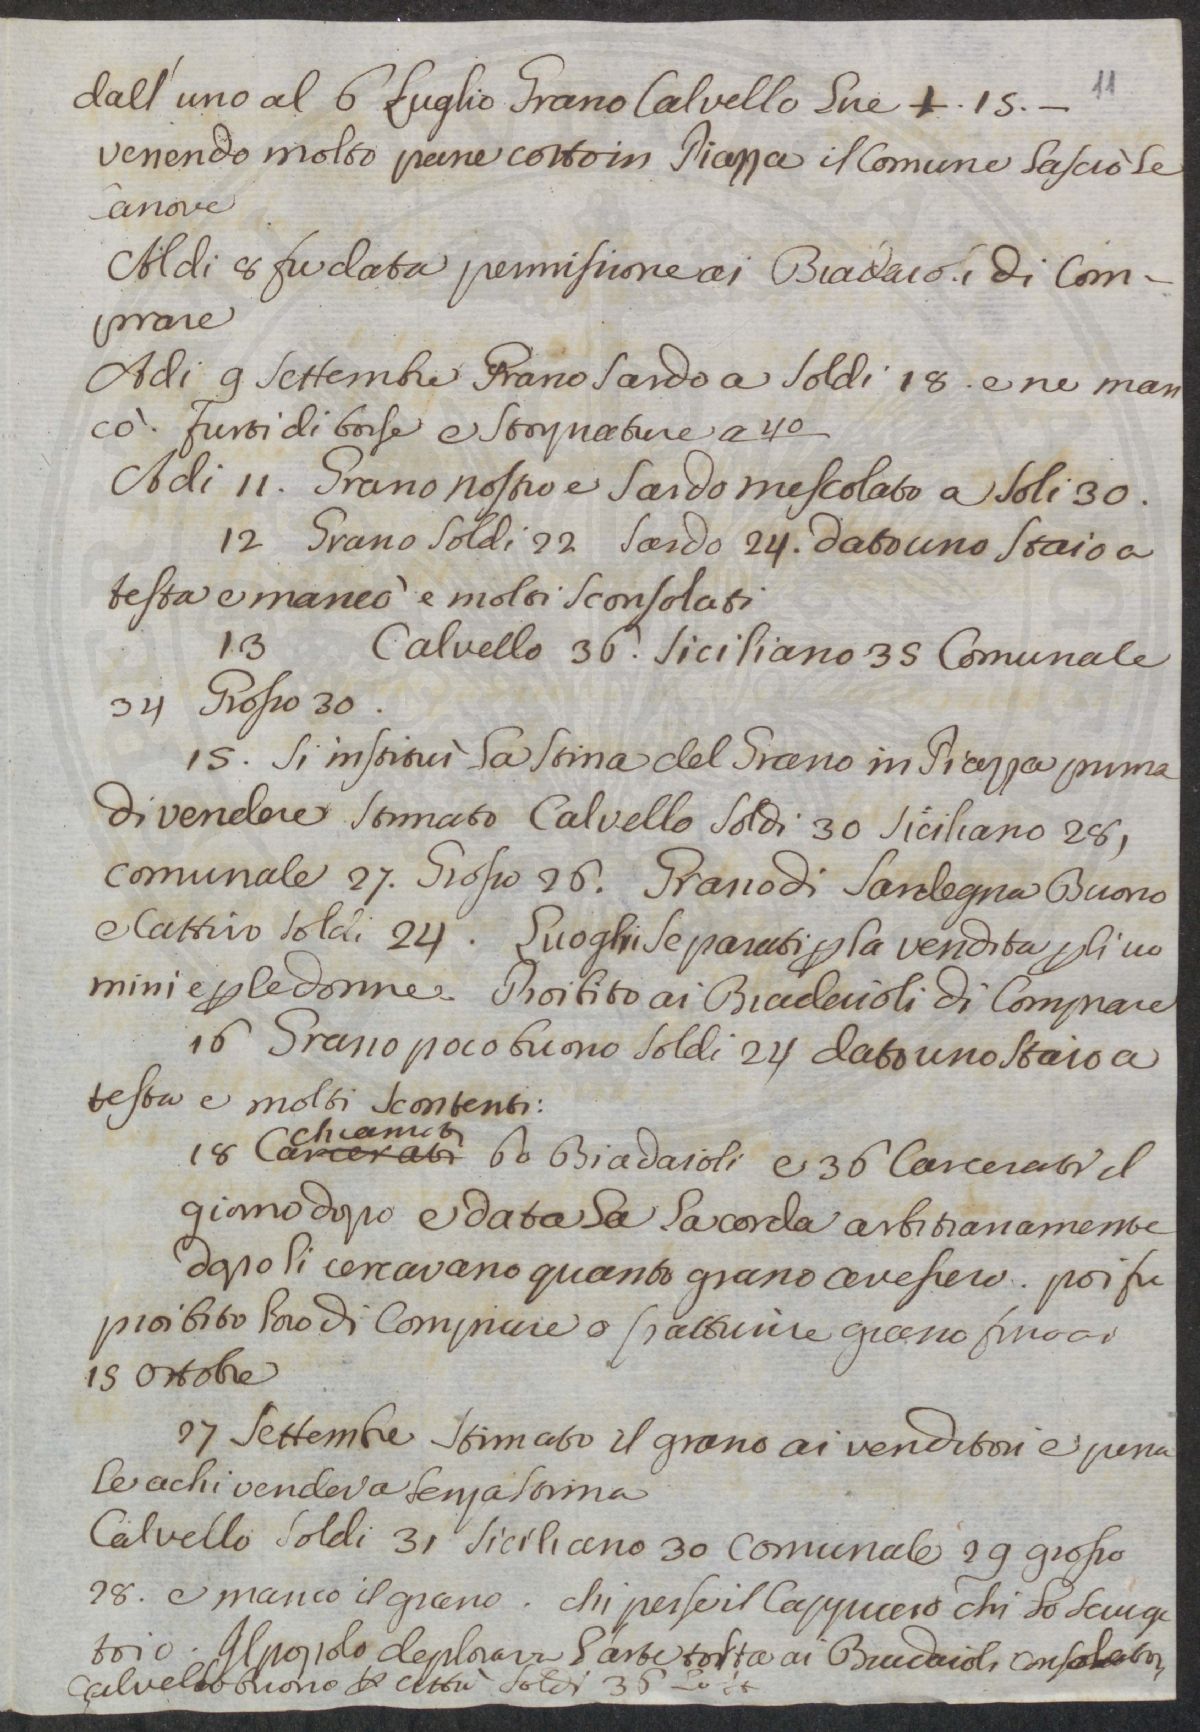 11
dall' uno al 6 Luglio Grano Calvello Lire 1. 15. —
venendo molto pane cotto in Piazza il Comune lasciò le
canove
Aldi 8 fu data permissione ai Biadaioli di Com-
prare
Adi 9 Settembre Grano Sardo a Soldi 18. e ne man
cò. Furti di borse e a 40
Adi 11. Grano nostro e Sardo mescolato a Soli 30.
12 Grano Soldi 22 Sardo 24. dato uno Staio a
testa e mancò e molti Sconsolati
13 Calvello 36. Siciliano 35 Comunale
34 Grosso 30.
15. Si instituì la Stima del Grano in Piazza prima
di vendere Stimato Calvello Soldi 30 Siciliano 28,
comunale 27. Grosso 26. Grano di Sardegna Buono
e Cattivo Soldi 24. Luoghi Separati p la vendita p li uo
mini e p le donne. Proibito ai Biadaioli di Comprare
16 Grano poco buono Soldi 24 dato uno Staio a
testa e molti Scontenti:
chiamati
18 Carcerati 60 Biadaioli e 36 Carcerati il
giorno dopo e data la la corda arbitrariamente
dopo li cercavano quanto grano avessero. poi fu
proibito loro di Comprare o grano fino ai
15 Ottobre
27 Settembre Stimato il grano ai venditori e pena
le a chi vendeva senza Stima
Calvello Soldi 31 Siciliano 30 comunale 29 grosso
28. e manco il grano. chi perse il Cappuccio chi lo sciuga
toio. Il popolo deplorava l'arte tolta ai Biadaioli
Calvello buono Soldi 36